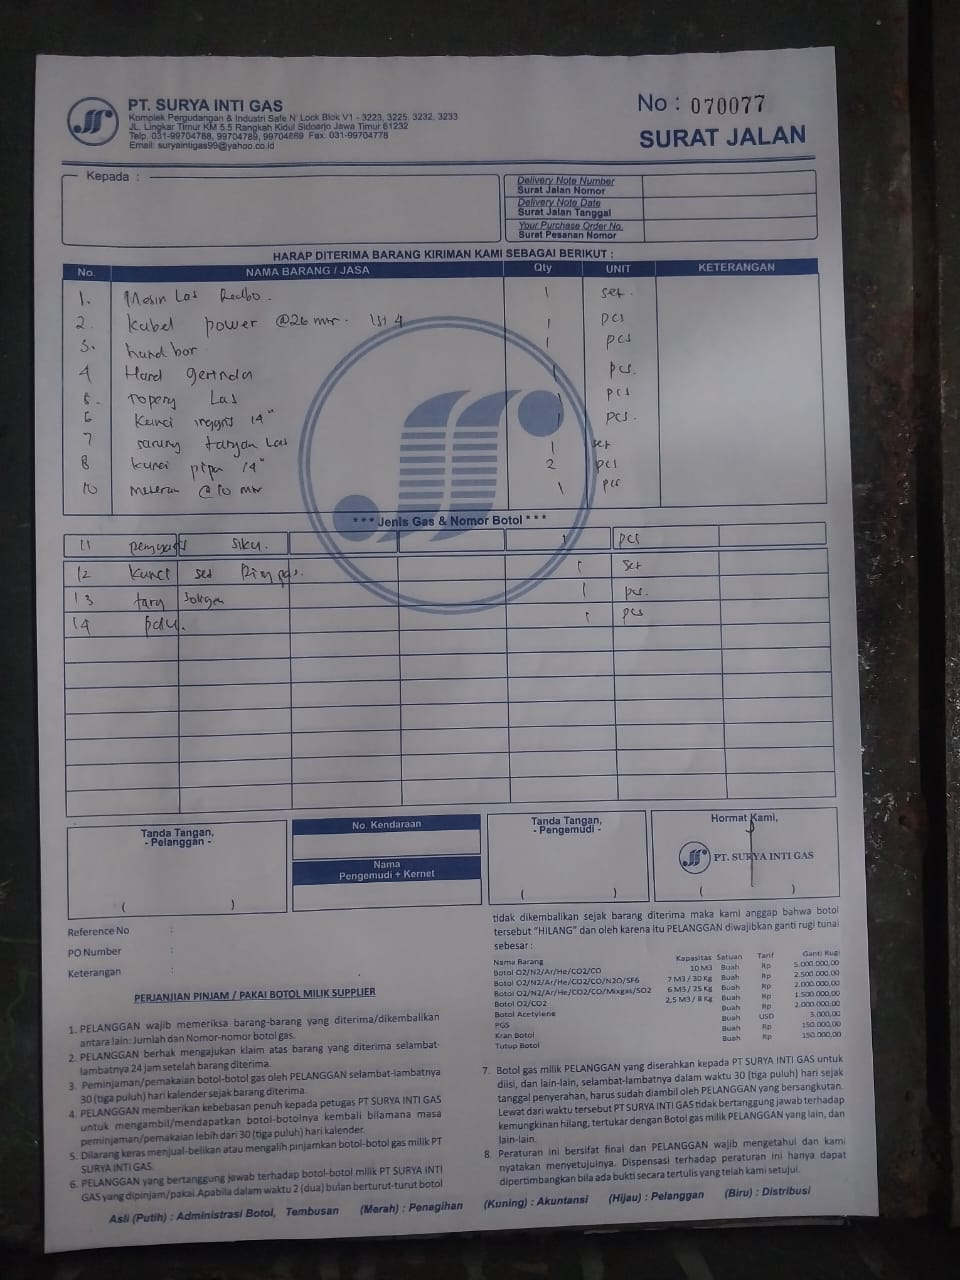 PT. SURYA INTI GAS
Komplek Pergudangan & Industri Safe N' Lock Blok V1 - 3223, 3225, 3232, 3233
JL. Lingkar Timur KM 5.5 Rangkah Kidul Sidoarjo Jawa Timur 61232
Telp. 031-99704788, 99704789, 99704889 Fax. 031-99704778
Email: suryaintigas99@yahoo.co.id
No : 070077
SURAT JALAN
Kepada :
Delivery Note Number
Surat Jalan Nomor
Delivery Note Date
Surat Jalan Tanggal
Your Purchase Order No.
Surat Pesanan Nomor
HARAP DITERIMA BARANG KIRIMAN KAMI SEBAGAI BERIKUT :
No. NAMA BARANG / JASA Qty UNIT KETERANGAN
1. Mesin Las Redbo. 1 set.
2. Kabel power @26 mtr. 1 pcs
3. hand bor 1 pcs
4 Hand gerinda 1 pcs.
5. topeng Las 1 pcs
6 Kunci inggris 14" 1 pcs.
7 sarung tangan Las 1 set
8 kunci pipa 14" 2 pcs
10 meteran @10 mtr 1 pcs
*** Jenis Gas & Nomor Botol ***
11 siku. 1 pcs
12 Kunci set Ring pas. 1 set
13 tang 1 pcs.
14 palu. 1 pcs
Tanda Tangan,
- Pelanggan -
( )
No. Kendaraan
Nama
Pengemudi + Kernet
Tanda Tangan,
- Pengemudi -
( )
Hormat Kami,
PT. SURYA INTI GAS
( )
Reference No :
PO Number :
Keterangan :
PERJANJIAN PINJAM / PAKAI BOTOL MILIK SUPPLIER
1. PELANGGAN wajib memeriksa barang-barang yang diterima/dikembalikan
antara lain: Jumlah dan Nomor-nomor botol gas.
2. PELANGGAN berhak mengajukan klaim atas barang yang diterima selambat-
lambatnya 24 jam setelah barang diterima.
3. Peminjaman/pemakaian botol-botol gas oleh PELANGGAN selambat-lambatnya
30 (tiga puluh) hari kalender sejak barang diterima.
4. PELANGGAN memberikan kebebasan penuh kepada petugas PT SURYA INTI GAS
untuk mengambil/mendapatkan botol-botolnya kembali bilamana masa
peminjaman/pemakaian lebih dari 30 (tiga puluh) hari kalender.
5. Dilarang keras menjual-belikan atau mengalih pinjamkan botol-botol gas milik PT
SURYA INTI GAS.
6. PELANGGAN yang bertanggung jawab terhadap botol-botol milik PT SURYA INTI
GAS yang dipinjam/pakai. Apabila dalam waktu 2 (dua) bulan berturut-turut botol
tidak dikembalikan sejak barang diterima maka kami anggap bahwa botol
tersebut "HILANG" dan oleh karena itu PELANGGAN diwajibkan ganti rugi tunai
sebesar :
Nama Barang Kapasitas Satuan Tarif Ganti Rugi
Botol O2/N2/Ar/He/CO2/CO 10 M3 Buah Rp 5.000.000,00
Botol O2/N2/Ar/He/CO2/CO/N2O/SF6 7 M3 / 30 Kg Buah Rp 2.500.000,00
Botol O2/N2/Ar/He/CO2/CO/Mixgas/SO2 6 M3 / 25 Kg Buah Rp 2.000.000,00
Botol O2/CO2 2,5 M3 / 8 Kg Buah Rp 1.500.000,00
Botol Acetylene Buah Rp 2.000.000,00
PGS Buah USD 3.000,00
Kran Botol Buah Rp 150.000,00
Tutup Botol Buah Rp 150.000,00
7. Botol gas milik PELANGGAN yang diserahkan kepada PT SURYA INTI GAS untuk
diisi, dan lain-lain, selambat-lambatnya dalam waktu 30 (tiga puluh) hari sejak
tanggal penyerahan, harus sudah diambil oleh PELANGGAN yang bersangkutan.
Lewat dari waktu tersebut PT SURYA INTI GAS tidak bertanggung jawab terhadap
kemungkinan hilang, tertukar dengan Botol gas milik PELANGGAN yang lain, dan
lain-lain.
8. Peraturan ini bersifat final dan PELANGGAN wajib mengetahui dan kami
nyatakan menyetujuinya. Dispensasi terhadap peraturan ini hanya dapat
dipertimbangkan bila ada bukti secara tertulis yang telah kami setujui.
Asli (Putih) : Administrasi Botol, Tembusan (Merah) : Penagihan (Kuning) : Akuntansi (Hijau) : Pelanggan (Biru) : Distribusi